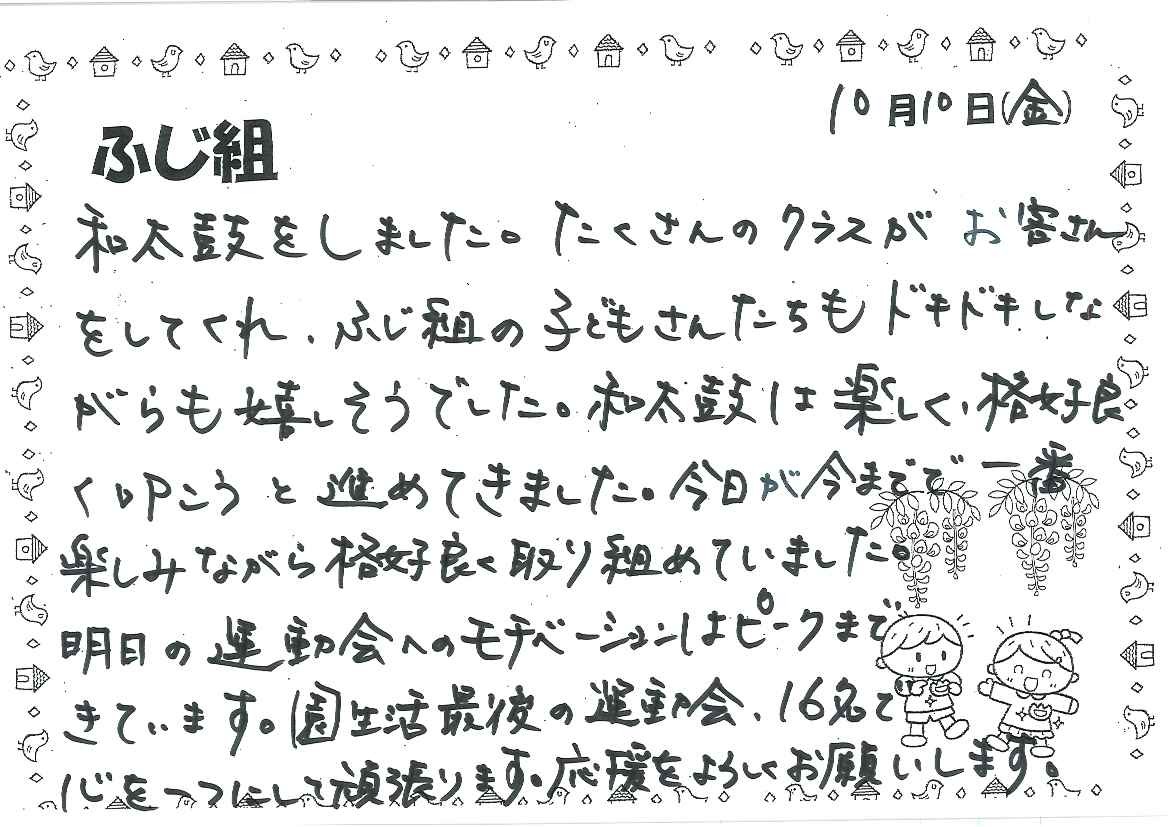 10月10日(金)
ふじ組
和太鼓をしました。たくさんのクラスがお客さん
をしてくれ、ふじ組の子どもさんたちもドキドキしな
がらも嬉しそうでした。和太鼓は楽しく、格好良
く叩こうと進めてきました。今日が今までで一番
楽しみながら格好良く取り組めていました。
明日の運動会へのモチベーションはピークまで
きています。園生活最後の運動会、16名で
心を一つにして頑張ります。応援をよろしくお願いします。